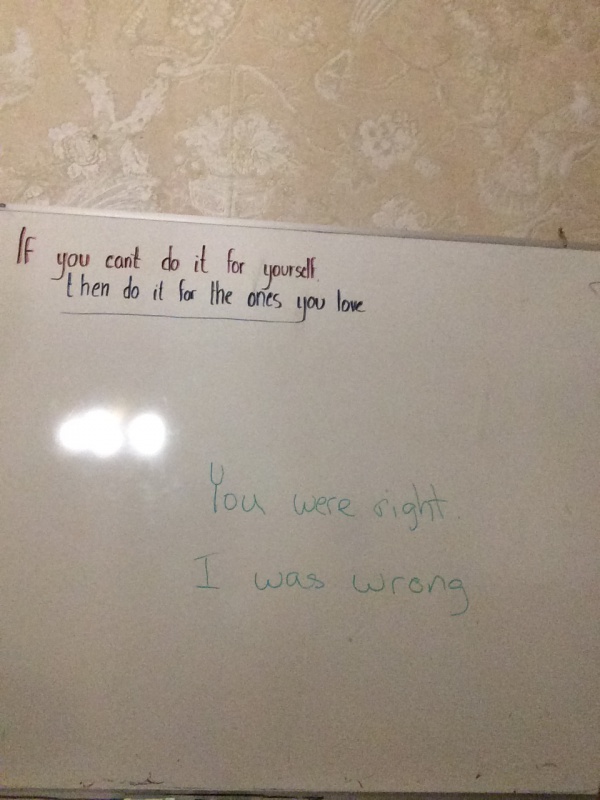 If you cant do it for yourself.
then do it for the ones you love
You were right.
I was wrong